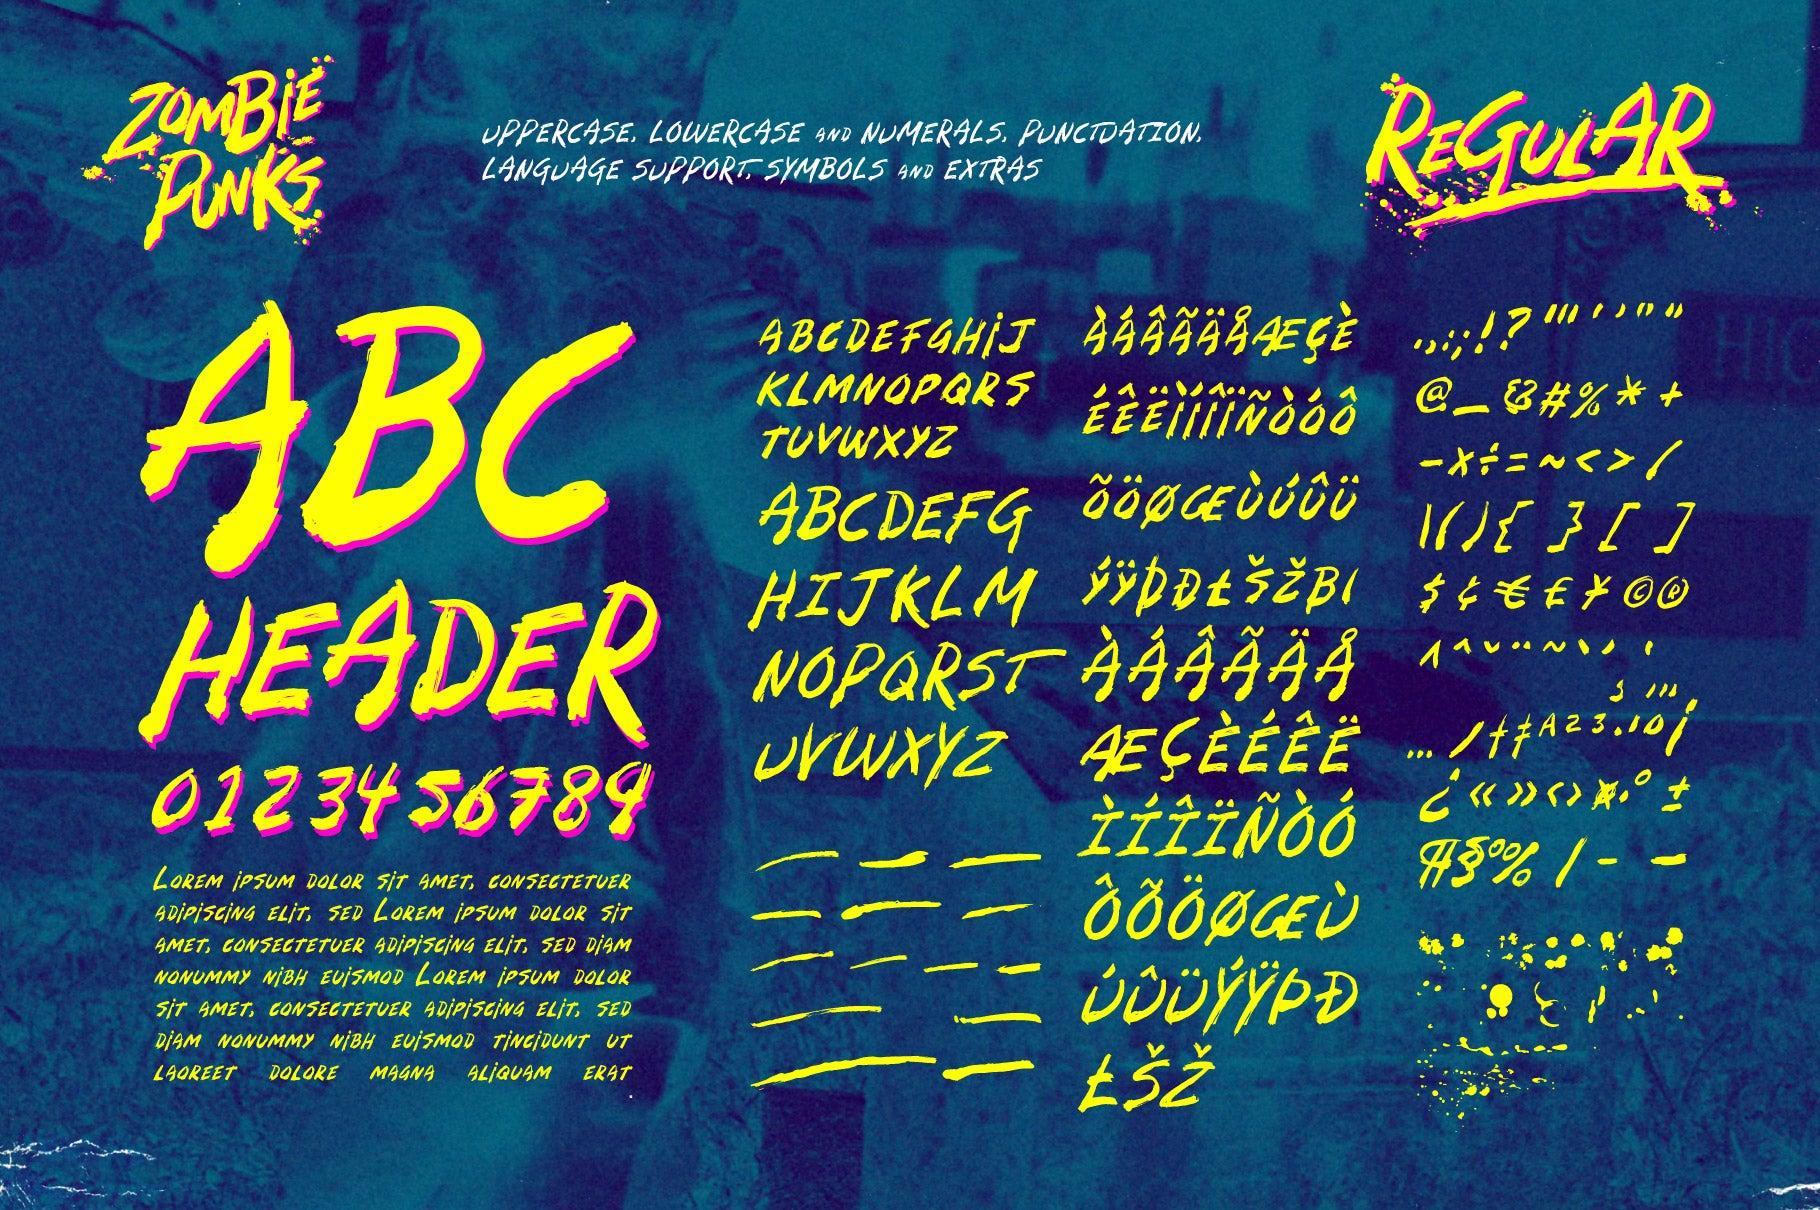 ZOMBIE
PUNKS
UPPERCASE, LOWERCASE AND NUMERALS, PUNCTUATION,
LANGUAGE SUPPORT, SYMBOLS AND EXTRAS
REGULAR
ABC
HEADER
0123456789
LOREM IPSUM DOLOR SIT AMET, CONSECTETUER
ADIPISCING ELIT, SED LOREM IPSUM DOLOR SIT
AMET, CONSECTETUER ADIPISCING ELIT, SED DIAM
NONUMMY NIBH EUISMOD LOREM IPSUM DOLOR
SIT AMET, CONSECTETUER ADIPISCING ELIT, SED
DIAM NONUMMY NIBH EUISMOD TINCIDUNT UT
LAOREET DOLORE MAGNA ALIQUAM ERAT
ABCDEFGHIJ
KLMNOPQRS
TUVWXYZ
ABCDEFG
HIJKLM
NOPQRST
UVWXYZ
ÀÁÂÃÄÅÆÇÈ
ÉÊËÌÍÎÏÑÒÓÔ
ÕÖØŒÙÚÛÜ
ÝŸÞÐŁŠŽBI
ÀÁÂÃÄÅ
ÆÇÈÉÊË
ÌÍÎÏÑÒÓ
ÔÕÖØŒÙ
ÚÛÜÝŸÞÐ
ŁŠŽ
.,:;!?"'''""
@_&#%*+
-×÷=~<>/
\(){}[]
$¢€£¥©®
^ˆ˘¨~`´
…/†‡A23.10¡
¿«»‹›¤·°±
¶§%/-–